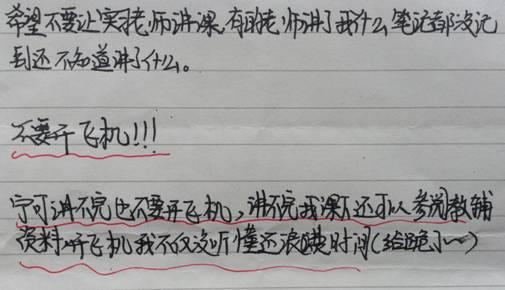 希望不要让实习老师讲课,有的老师讲了我什么笔记都没记
到还不知道讲了什么。
不要开飞机!!!
宁可讲不完也不要开飞机,讲不完我课下还可以参阅教辅
资料,开飞机我不仅没听懂还浪费时间(给跪了~~)